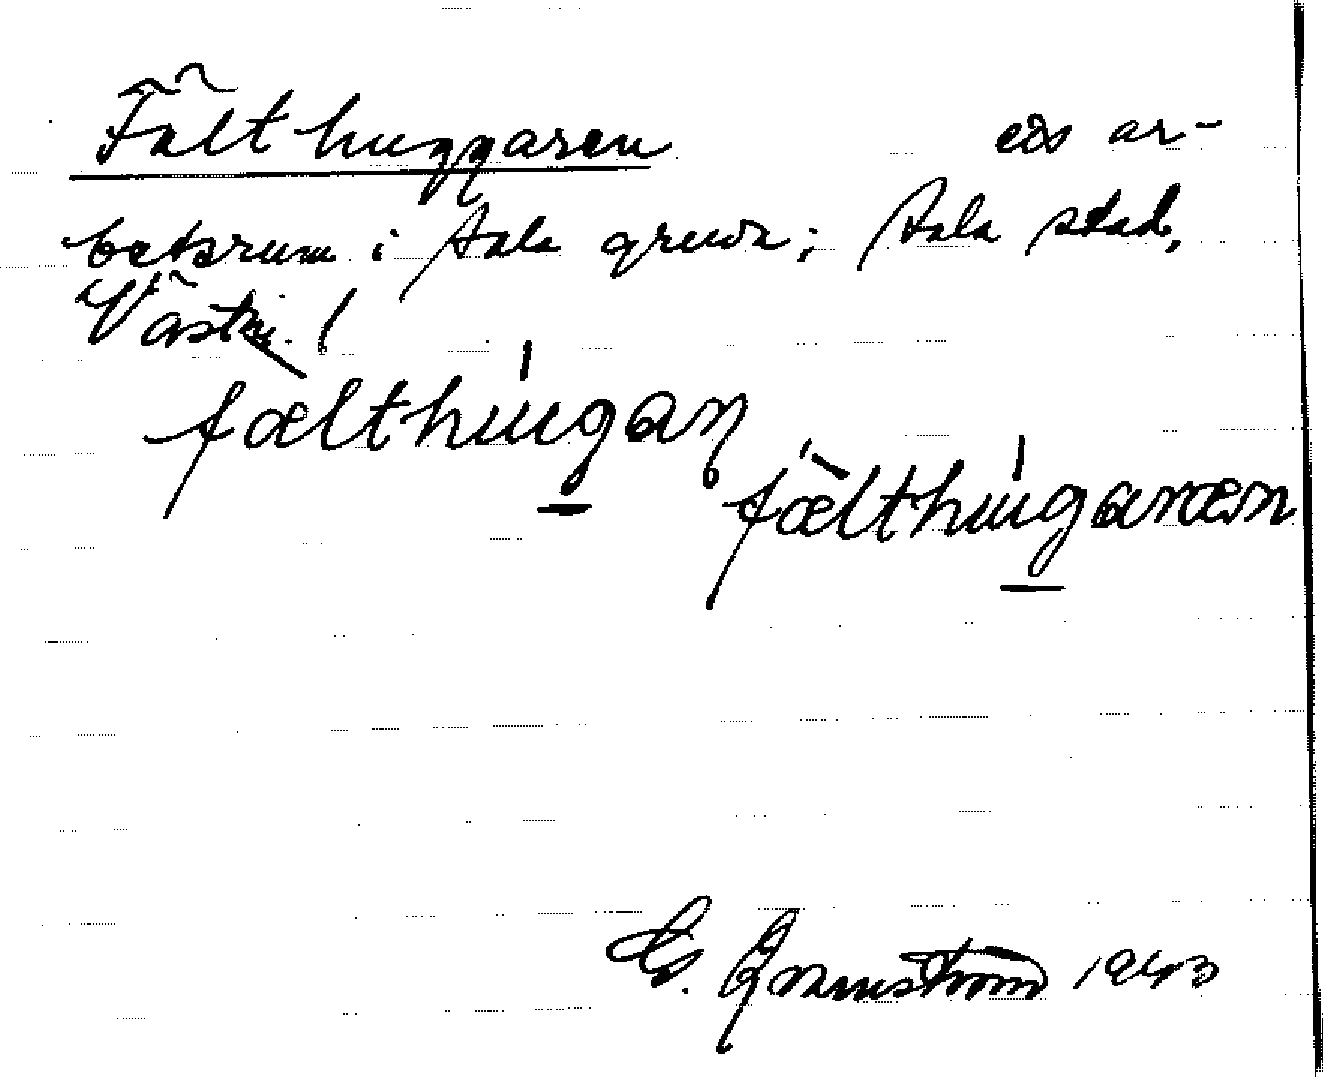 Fälthuggaren ett ar-
betsrum i Sala gruva; Sala stad,
Västm. l
fælthúgan
fælthúganæn
G. 1943